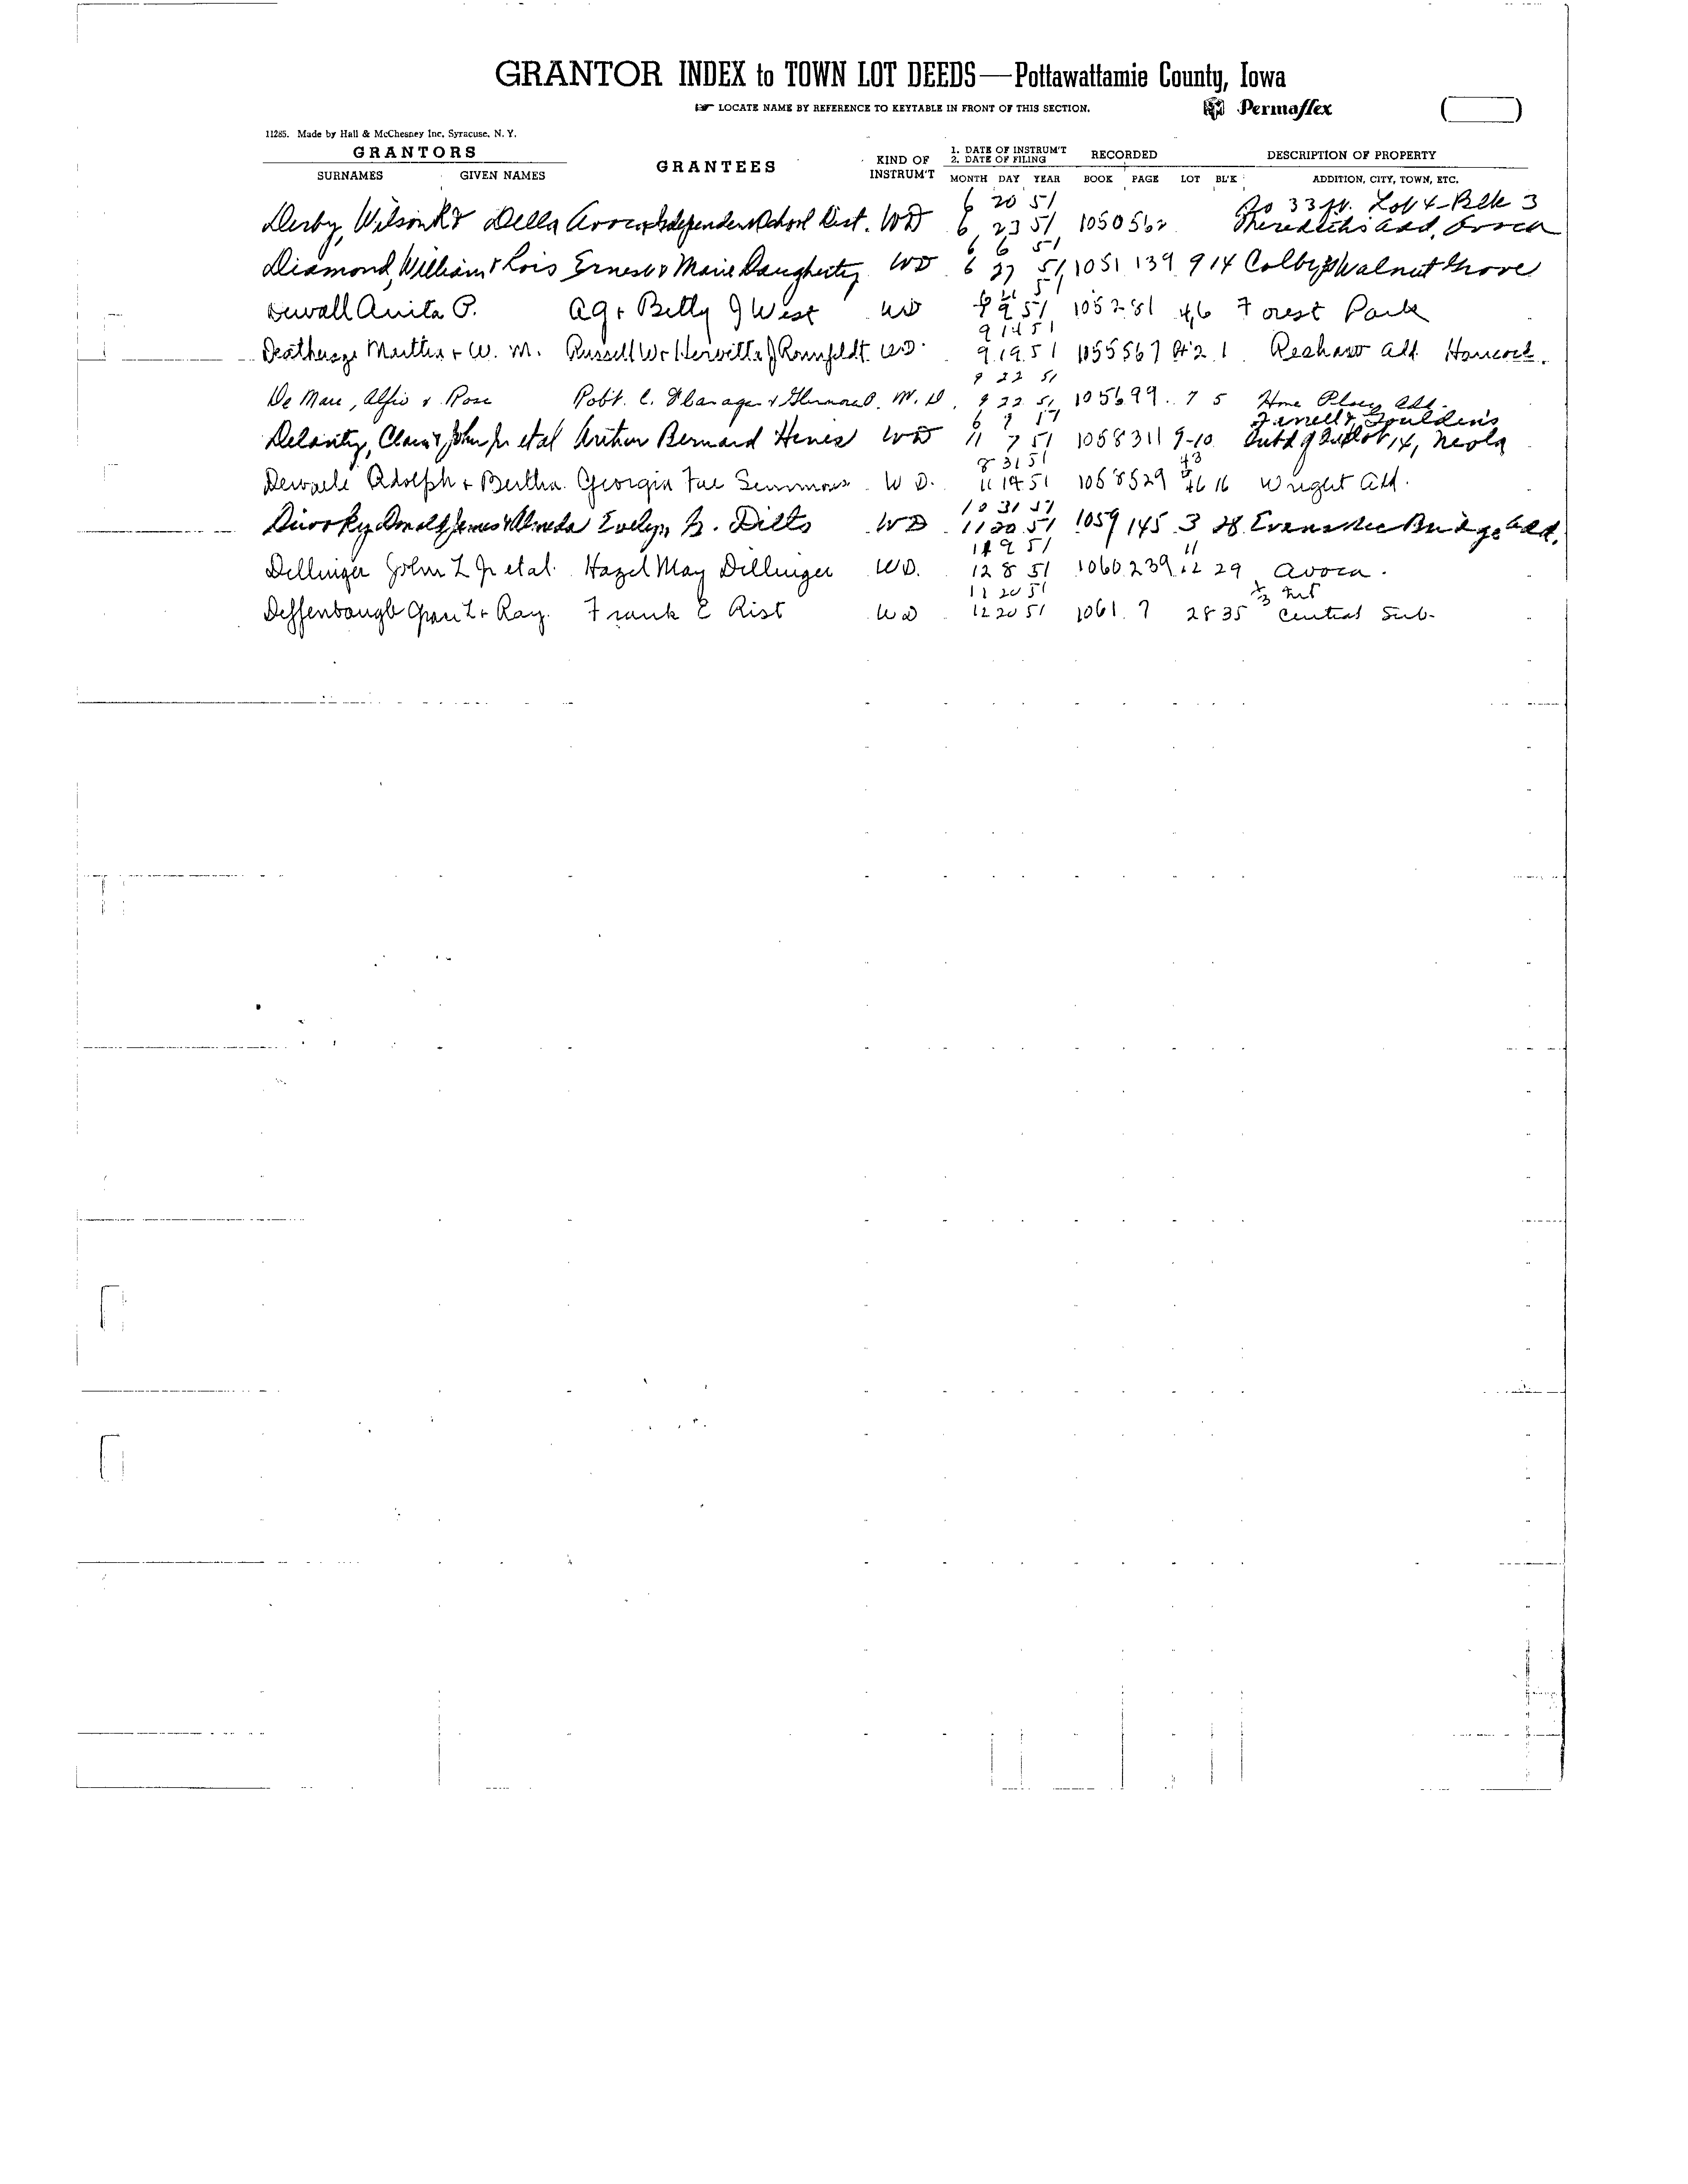 GRANTOR INDEX to TOWN LOT DEEDS—Pottawattamie County, Iowa
☞ LOCATE NAME BY REFERENCE TO KEYTABLE IN FRONT OF THIS SECTION. Permaflex
11285. Made by Hall & McChesney Inc. Syracuse, N. Y.
GRANTORS GRANTEES KIND OF INSTRUM'T 1. DATE OF INSTRUM'T 2. DATE OF FILING RECORDED DESCRIPTION OF PROPERTY
SURNAMES GIVEN NAMES MONTH DAY YEAR BOOK PAGE LOT BL'K ADDITION, CITY, TOWN, ETC.
6 20 51 So 33 ft. Lot 4 - Blk 3
Derby, Wilson R & Della Avoca Independent School Dist. WD 6 23 51 1050 562 Add, Avoca
6 6 51
Diamond, William & Lois Ernest & Marie Daugherty WD 6 27 51 1051 139 9 14 Colby's Walnut Grove
Duvall Anita P. A G + Betty J West WD 9 51 1052 81 46 Forest Park
9 14 51
Deatherage Martha + W. M. Russell W + J Romfeldt WD. 9 19 51 1055 567 Pt 2 1 Add. Hancock.
9 22 51
De Marc, Alfio & Rose Robt. C. W. D. 9 22 51 1056 99 7 5 Home Place Add.
6 9
Delanty, Clair & John Jr et al Arthur Bernard Hines WD 11 7 51 1058 311 9-10 Subd of Outlot 14, Neola
8 31 51 43
Adolph + Bertha Georgia Fae WD. 11 14 51 1058 529 46 16 Wright Add.
10 31 51
Donald James & Almeda Evelyn B. Dilts WD 11 20 51 1059 145 3 28 Evans Bridge Add.
11 9 51 11
Dillinger John L Jr et al. Hazel May Dillinger WD. 12 8 51 1060 239 12 29 Avoca.
11 20 51 1/3 Int
Deffenbaugh + Ray. Frank E Rist WD 12 20 51 1061 7 28 35 Central Sub.